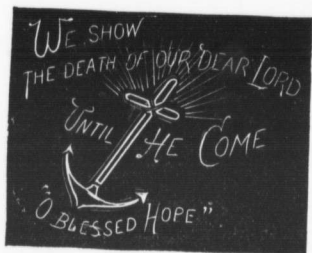 WE SHOW
THE DEATH OF OUR DEAR LORD
UNTIL HE COME
"O BLESSED HOPE"